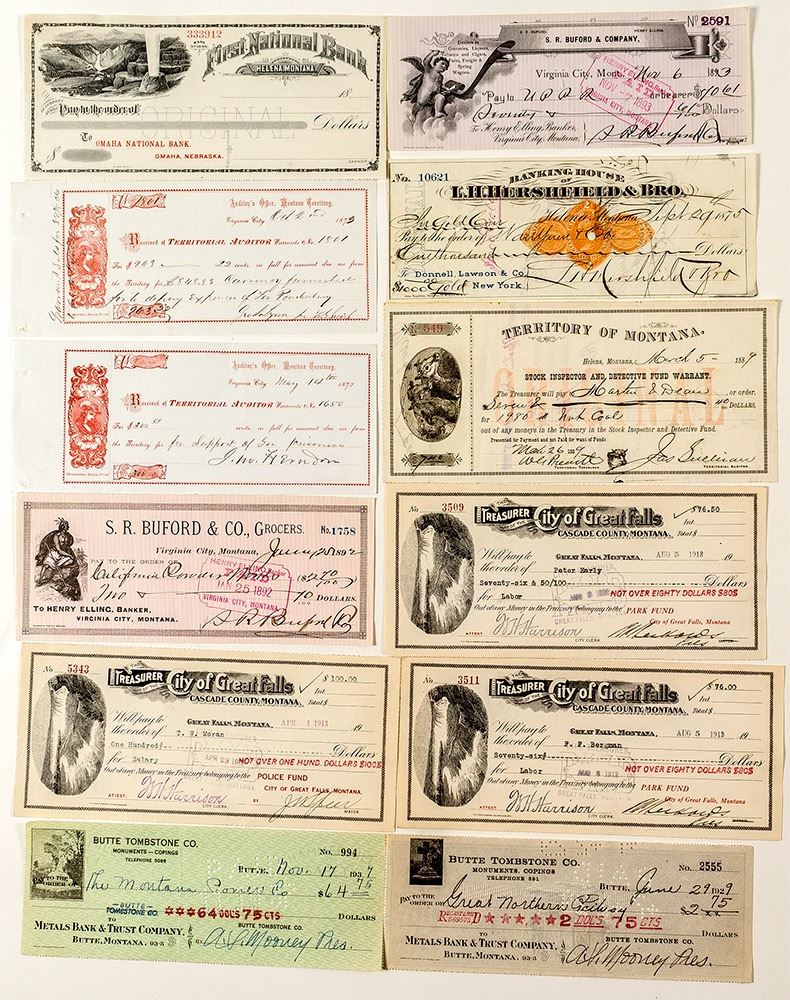 333912
First National Bank
HELENA MONTANA
18
Pay to the order of
ORIGINAL
Dollars
To
OMAHA NATIONAL BANK.
OMAHA, NEBRASKA.
$
CASHIER
No 2591
S. R. BUFORD & COMPANY,
Dealers in
Groceries, Liquors,
Tobacco and Cigars,
Farm, Freight &
Spring
Wagons.
Virginia City, Mont. Nov 6 1893
Pay to U P R R or bearer $70 61
Seventy & 61/100 Dollars
To Henry Elling, Banker,
Virginia City, Montana.
S R Buford Co
Auditor's Office, Montana Territory,
Virginia City
Received of TERRITORIAL AUDITOR Warrants No. 1801
For $ 963 22 cents, in full for amount due me from
the Territory for $848.83 Currency furnished
No. 10621
BANKING HOUSE
OF
L.H. HERSHFIELD & BRO.
Helena, Montana, Sept 29 1875
Pay to the order of
One thousand Dollars
To Donnell, Lawson & Co.
New York.
Auditor's Office, Montana Territory,
Virginia City May 14th 1873
Received of TERRITORIAL AUDITOR Warrants No. 1650
cents, in full for amount due me from
the Territory for for Support of Ter prisoners
J. W. Herndon
No 549
TERRITORY OF MONTANA.
Helena, Montana, March 5 - 1889
STOCK INSPECTOR AND DETECTIVE FUND WARRANT.
The Treasurer will pay to Martin & Dean or order.
Seven & 40 DOLLARS,
for 1980 # Nut Coal
out of any moneys in the Treasury in the Stock Inspector and Detective Fund.
Presented for Payment and not Paid for want of Funds
March 26 1889
TERRITORIAL TREASURER
Jas Sullivan
TERRITORIAL AUDITOR
S. R. BUFORD & CO., GROCERS.
No. 1758
Virginia City, Montana, 1892
PAY TO THE ORDER OF
California Powder Works
Two & 40 DOLLARS.
TO HENRY ELLING, BANKER,
VIRGINIA CITY, MONTANA.
HENRY ELLING, Banker
PAID
JAN 25 1892
VIRGINIA CITY, MONTANA
S R Buford Co
No 3509
TREASURER OF THE City of Great Falls
CASCADE COUNTY, MONTANA.
$76.50
Int.
Total $
GREAT FALLS, MONTANA, AUG 5 1913 19
Will pay to
the order of Peter Early
Seventy-six & 50/100 Dollars
for Labor NOT OVER EIGHTY DOLLARS $80$
Out of any Money in the Treasury belonging to the PARK FUND
City of Great Falls, Montana
ATTEST W H Harrison
CITY CLERK.
No 5343
TREASURER OF THE City of Great Falls
CASCADE COUNTY, MONTANA.
$ 100.00
Int
Total $
GREAT FALLS, MONTANA, APR 1 1913 19
Will pay to
the order of T. W. Moran
One Hundred Dollars
for Salary NOT OVER ONE HUND. DOLLARS $100$
Out of any Money in the Treasury belonging to the POLICE FUND
CITY OF GREAT FALLS, MONTANA
ATTEST: W H Harrison
CITY CLERK
MAYOR
No 3511
TREASURER OF THE City of Great Falls
CASCADE COUNTY, MONTANA.
$ 76.00
Int.
Total $
GREAT FALLS, MONTANA, AUG 5 1913 19
Will pay to
the order of F. F. Bergman
Seventy-six Dollars
for Labor NOT OVER EIGHTY DOLLARS $80$
Out of any Money in the Treasury belonging to the PARK FUND
City of Great Falls, Montana
ATTEST: W H Harrison
CITY CLERK
BUTTE TOMBSTONE CO.
MONUMENTS - COPINGS
TELEPHONE 5098
No. 994
BUTTE, Nov. 17 1937
PAY TO THE ORDER OF
The Montana Power Co $64 75
BUTTE TOMBSTONE CO ***64 DOL'S 75 CTS DOLLARS
TO
METALS BANK & TRUST COMPANY,
BUTTE, MONTANA. 93-3
BUTTE TOMBSTONE CO.
A. S. Mooney Pres.
BUTTE TOMBSTONE CO.
MONUMENTS, COPINGS
TELEPHONE 591
No. 2555
BUTTE, June 29 1929
PAY TO THE
ORDER OF Great Northern Railway $2 75
REGISTERED ★★★★★2 DOL'S 75 CTS DOLLARS
TO
METALS BANK & TRUST COMPANY,
BUTTE, MONTANA. 93-3
BUTTE TOMBSTONE CO.
A. S. Mooney Pres.